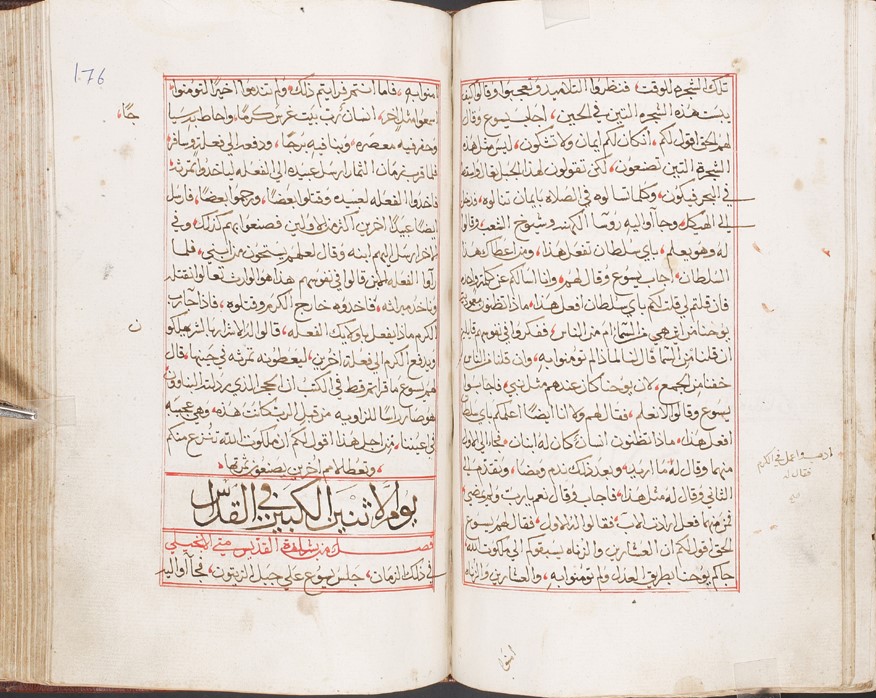 تلك الشجره للوقت، فنظروا التلاميذ وتعجبوا وقالوا كيف
يبست هذه الشجره التين في الحين، اجاب يسوع وقال
لهم الحق اقول لكم، ان كان لكم ايمان ولا تشكون، ليس مثل هذه
الشجرة التين تصنعون، لكن تقولون لهذا الجبل تعال واسقط
في البحر فيكون، وكلما تسالوه في الصلاه بايمان تنالوه، ودخل
الى الهيكل، وجآ اليه روسآ الكهنه وشيوخ الشعب، وقالوا
له وهو يعلم، باي سلطان تفعل هذا، ومن اعطاك هذا
السلطان، اجاب يسوع وقال لهم، وانا اسالكم عن كلمة واحده
فان قلتم لي قلت لكم باي سلطان افعل هذا، ماذا تظنون معمودية
يوحنا من اين هي من السمآ ام من الناس، ففكروا في نفوسهم قايلين
ان قلنا من السمآ قال لنا لماذا لم تومنوا به، وان قلنا من الناس
خفنا من الجمع، لان يوحنا كان عندهم مثل نبي، فاجابوا
يسوع وقالوا لا نعلم، فقال لهم ولا انا ايضا اعلمكم باي سلطان
افعل هذا، ماذا تظنون انسان كان له ابنان، فجا الى الاول
منهما وقال له ما اريد، وبعد ذلك ندم ومضا، وتقدم الى
الثاني وقال له مثل هذا، فاجاب وقال نعم يارب ولم يمضي
فمن منهما فعل ارادت الاب، فقالوا له الاول، فقال لهم يسوع
الحق اقول لكم ان العشارين والزناه يسبقوكم الى ملكوت الله
جاكم يوحنا بطريق العدل ولم تومنوا به، والعشارين والزناه
اذهب واعمل في الكرم
فقال له
امنوا
176
امنوا به، فاما انتم فرايتم ذلك، ولم تندموا اخيرًا لتومنوا
اسمعوا مثل اخر، انسان رب بيت غرس كرما، واحاط به سياجًا،
وحفر فيه معصره، وبنا فيه برجًا، ودفعه الى فعلة وسافر
فلما قرب زمان الثمار ارسل عبيده الى الفعله لياخدوا ثمرته
فاخدوا الفعله لعبيده وقتلوا بعضا، ورجموا بعضا، فارسل
ايضا عبيدًا اخرين اكثر من الاولين فصنعوا بهم كذلك، وفي
الاخر ارسل اليهم ابنه وقال لعلهم يستحيون من ابني، فلما
راوا الفعله قالوا في نفوسهم هذا هو الوارث تعالوا نقتله
وناخد ميراثه، فاخدوه خارج الكرم وقتلوه، فاذا جا رب
الكرم ماذا يفعل باوليك الفعله، قالوا له
ويدفع الكرم الى فعلة اخرين، ليعطونه ثمرته في حينها، قال
لهم يسوع ما قراتم قط في الكتب ان الحجر الذي رذله البناوون
هو صار راسا للزاويه من قبل الرب كانت هذه، وهي عجيبه
في اعيننا، من اجل هذا اقول لكم ان ملكوت الله تنزع منكم
وتعطا لامم اخرين يصنعون ثمرتها،
يوم الاثنين الكبير في القدس
فصل من بشارة القديس متى الانجيلي
في ذلك الزمان، جلس يسوع على جبل الزيتون، فجآ اليه